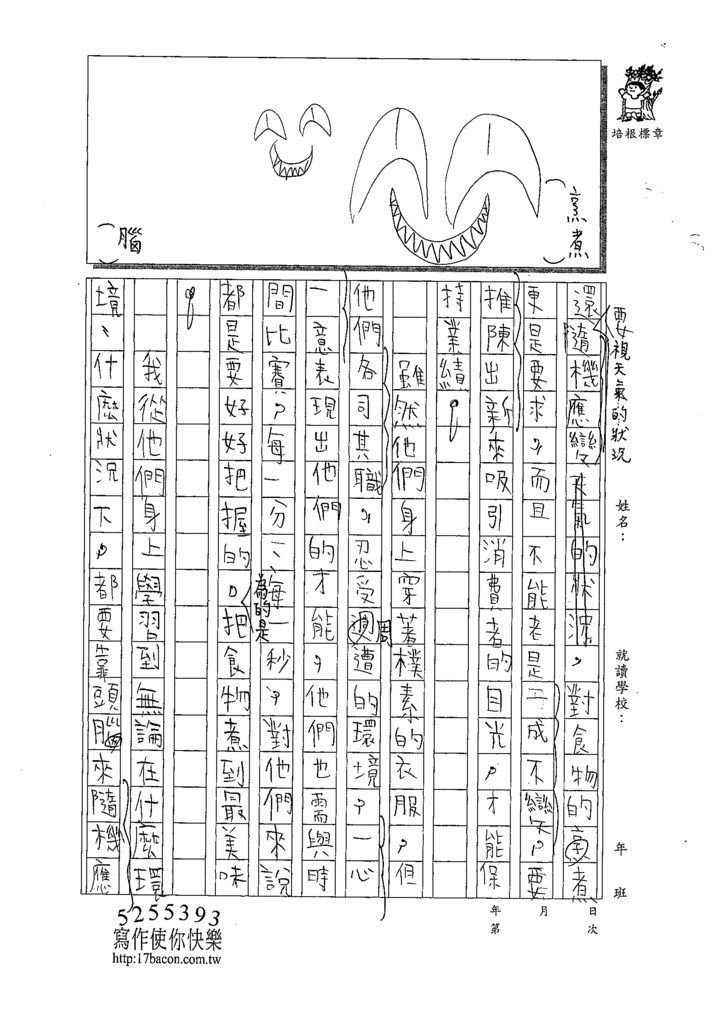 培根標章
烹煮
腦
要視天氣的狀況
姓名：
就讀學校：
年 班
日次
月
年第
還隨機應變天氣的狀況，對食物的烹煮
更是要求，而且不能老是一成不變，要
推陳出新來吸引消費者的目光，才能保
持業績。
雖然他們身上穿著樸素的衣服，但
他們各司其職，忍受週遭的環境，一心
周
一意表現出他們的才能，他們也需與時
間比賽，每一分、每一秒，對他們來說
都是要好好把握的。把食物煮到最美味
為的是
。
我從他們身上學習到無論在什麼環
境、什麼狀況下，都要靠頭腦來隨機應
5255393
寫作使你快樂
http:17bacon.com.tw